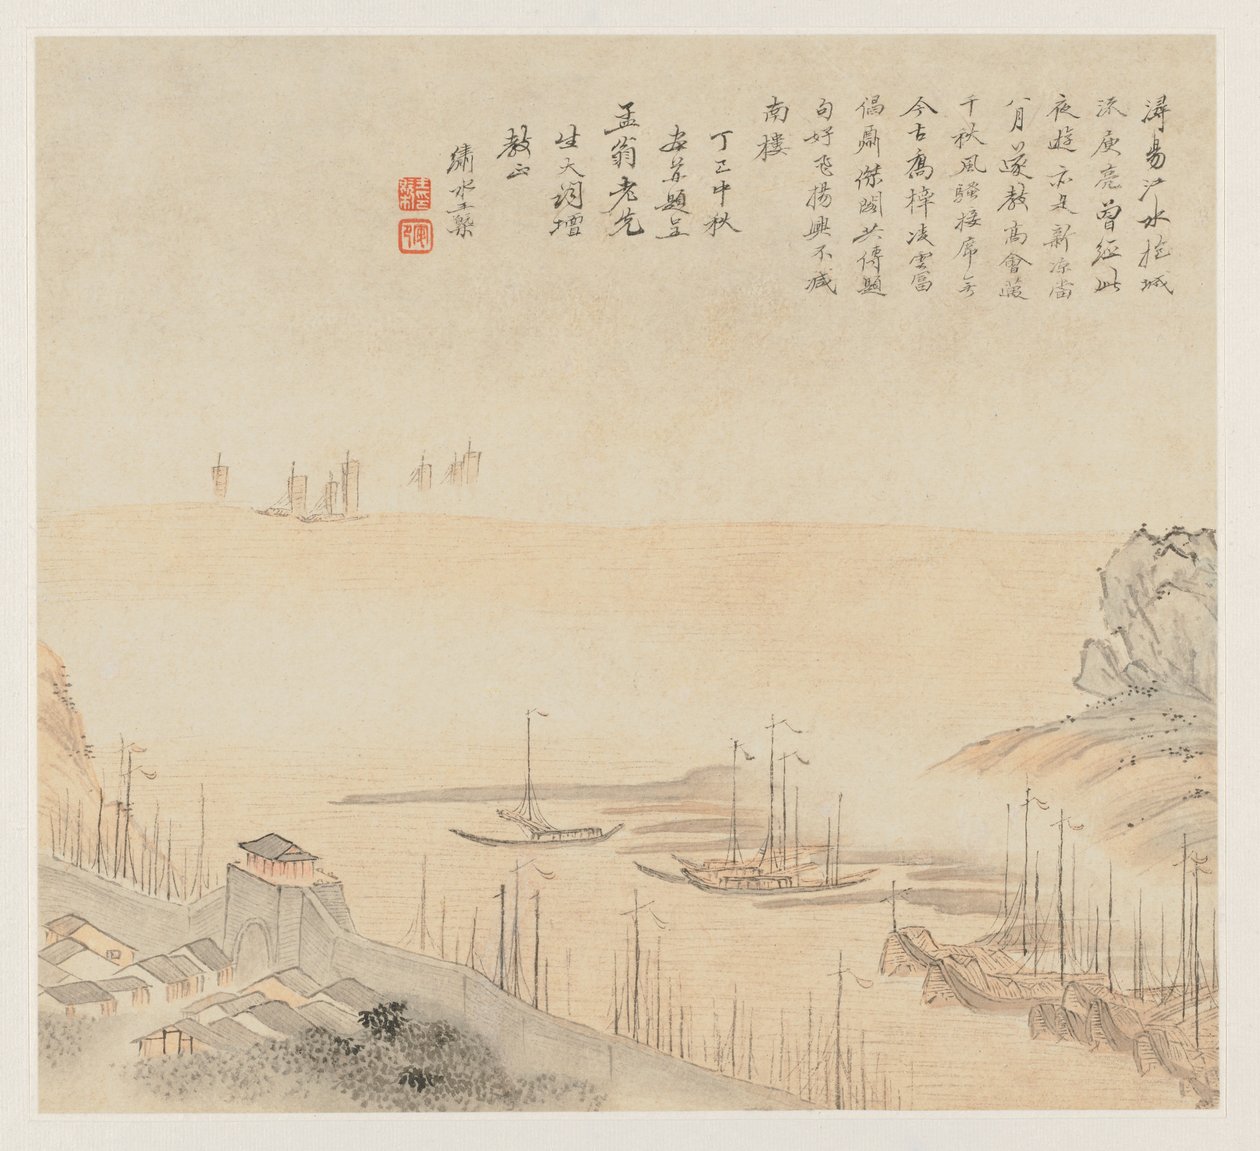 潯昜江水抱城
流庾亮曾經此
夜遊亦是新涼當
八月遂教高會藐
千秋風騷接席無
今古喬梓凌雲富
倡酬傑閣共傳題
句好飛揚興不減
南樓
丁巳中秋
畫并題呈
孟翁老先
生大詞壇
教正
繡水王槩